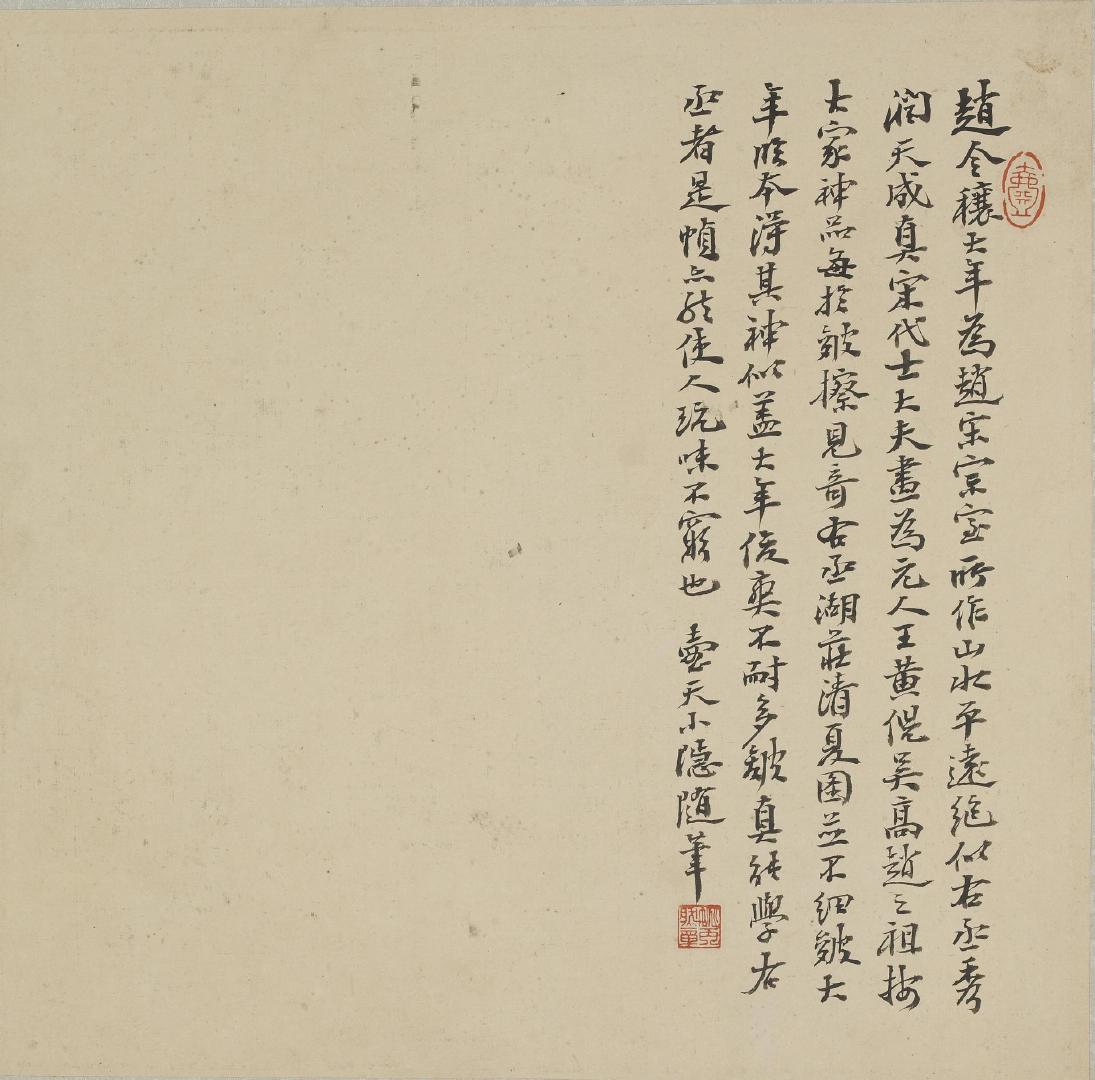 趙令穰大年為趙宋宗室所作山水平遠絕似右丞秀
潤天成真宋代士大夫畫為元人王黃倪吳高趙之祖按
大家神品每於皴擦見奇右丞湖莊清夏圖並不細皴大
年臨本得其神似蓋大年俊爽不耐多皴真能學右
丞者是幀亦能使人玩味不窮也 壺天小隱隨筆